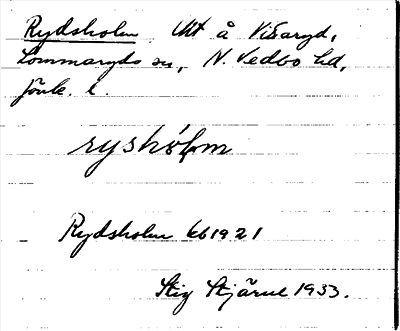 Rydsholm. Utt å Visaryd,
Lommaryds sn, N. Vedbo hd,
Jönk. l.
ryshólm
Rydsholm kb 1921
Stig Stjärne 1933.